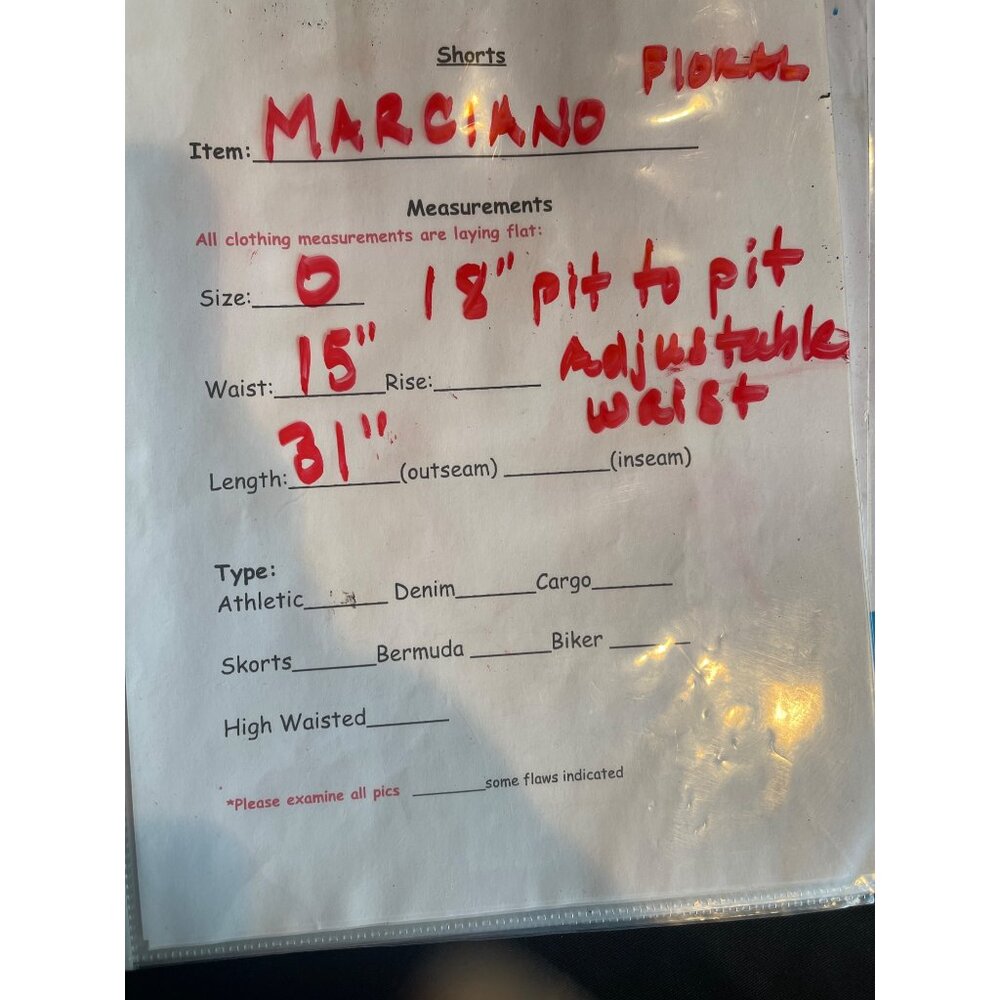 Shorts
FlORAL
Item: MARCIANO
Measurements
All clothing measurements are laying flat:
Size: 0 18" pit to pit
Waist: 15" Rise: Adjustable
waist
Length: 31" (outseam) (inseam)
Type:
Athletic Denim Cargo
Skorts Bermuda Biker
High Waisted
*Please examine all pics some flaws indicated